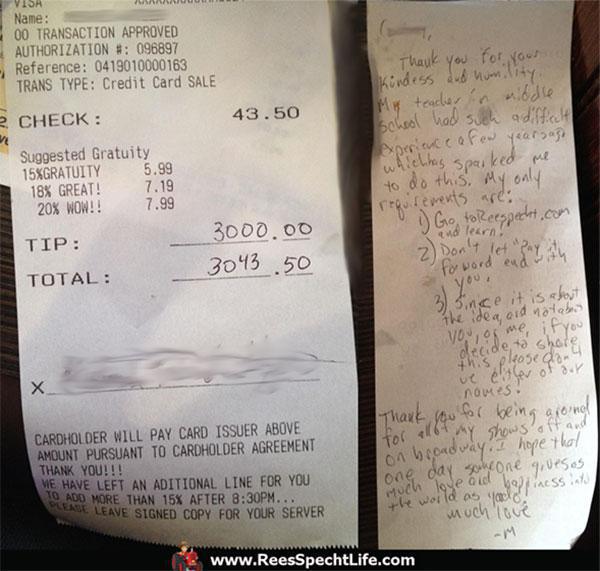 VISA
Name:
00 TRANSACTION APPROVED
AUTHORIZATION #: 096897
Reference: 0419010000163
TRANS TYPE: Credit Card SALE
CHECK: 43.50
Suggested Gratuity
15%GRATUITY 5.99
18% GREAT! 7.19
20% WOW!! 7.99
TIP: 3000.00
TOTAL: 3043.50
X
CARDHOLDER WILL PAY CARD ISSUER ABOVE
AMOUNT PURSUANT TO CARDHOLDER AGREEMENT
THANK YOU!!!
WE HAVE LEFT AN ADITIONAL LINE FOR YOU
TO ADD MORE THAN 15% AFTER 8:30PM...
PLEASE LEAVE SIGNED COPY FOR YOUR SERVER
Thank you for your
Kindess and humility.
My teacher in middle
School had such a difficult
experience a few years ago
which has sparked me
to do this. My only
requirements are:
1) Go to Reespecht.com
and learn!
2) Don't let "Pay it
forward end with
you.
3) Since it is about
the idea, and not about
you, or me, if you
decide to share
this, please don't
use either of our
names.
Thank you for being around
for all of my shows off and
on broadway. I hope that
one day someone gives as
much love and happiness into
the world as you do.
much love
-M
www.ReesSpechtLife.com